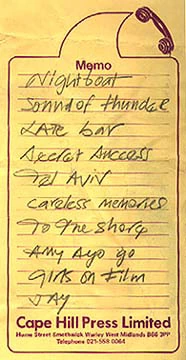 Memo
Nightboat
Sound of thunder
LATE bar
Secret Success
Tel Aviv
careless memories
To the shore
Amy Ayo go
Girls on Film
JAY
Cape Hill Press Limited
Hume Street Smethwick Warley West Midlands B66 3PP
Telephone 021-558 0064